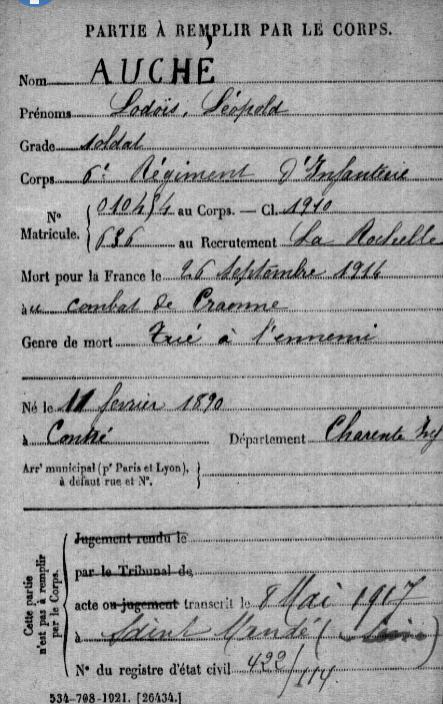 PARTIE À REMPLIR PAR LE CORPS.
Nom AUCHÉ
Prénoms Lodois, Léopold
Grade soldat
Corps 6e Régiment d'Infanterie
N° Matricule. { 010454 au Corps. — Cl. 1910
636 au Recrutement La Rochelle
Mort pour la France le 26 septembre 1914
au combat de Craonne
Genre de mort Tué à l'ennemi
Né le 11 février 1890
à Contré Département Charente Inf
Arrt municipal (pr Paris et Lyon), à défaut rue et N°. {
Cette partie n'est pas à remplir par le Corps.
Jugement rendu le
par le Tribunal de
acte ou jugement transcrit le 8 Mai 1917
à Saint Mandé (
N° du registre d'état civil 422/114
534-708-1921. [26434.]